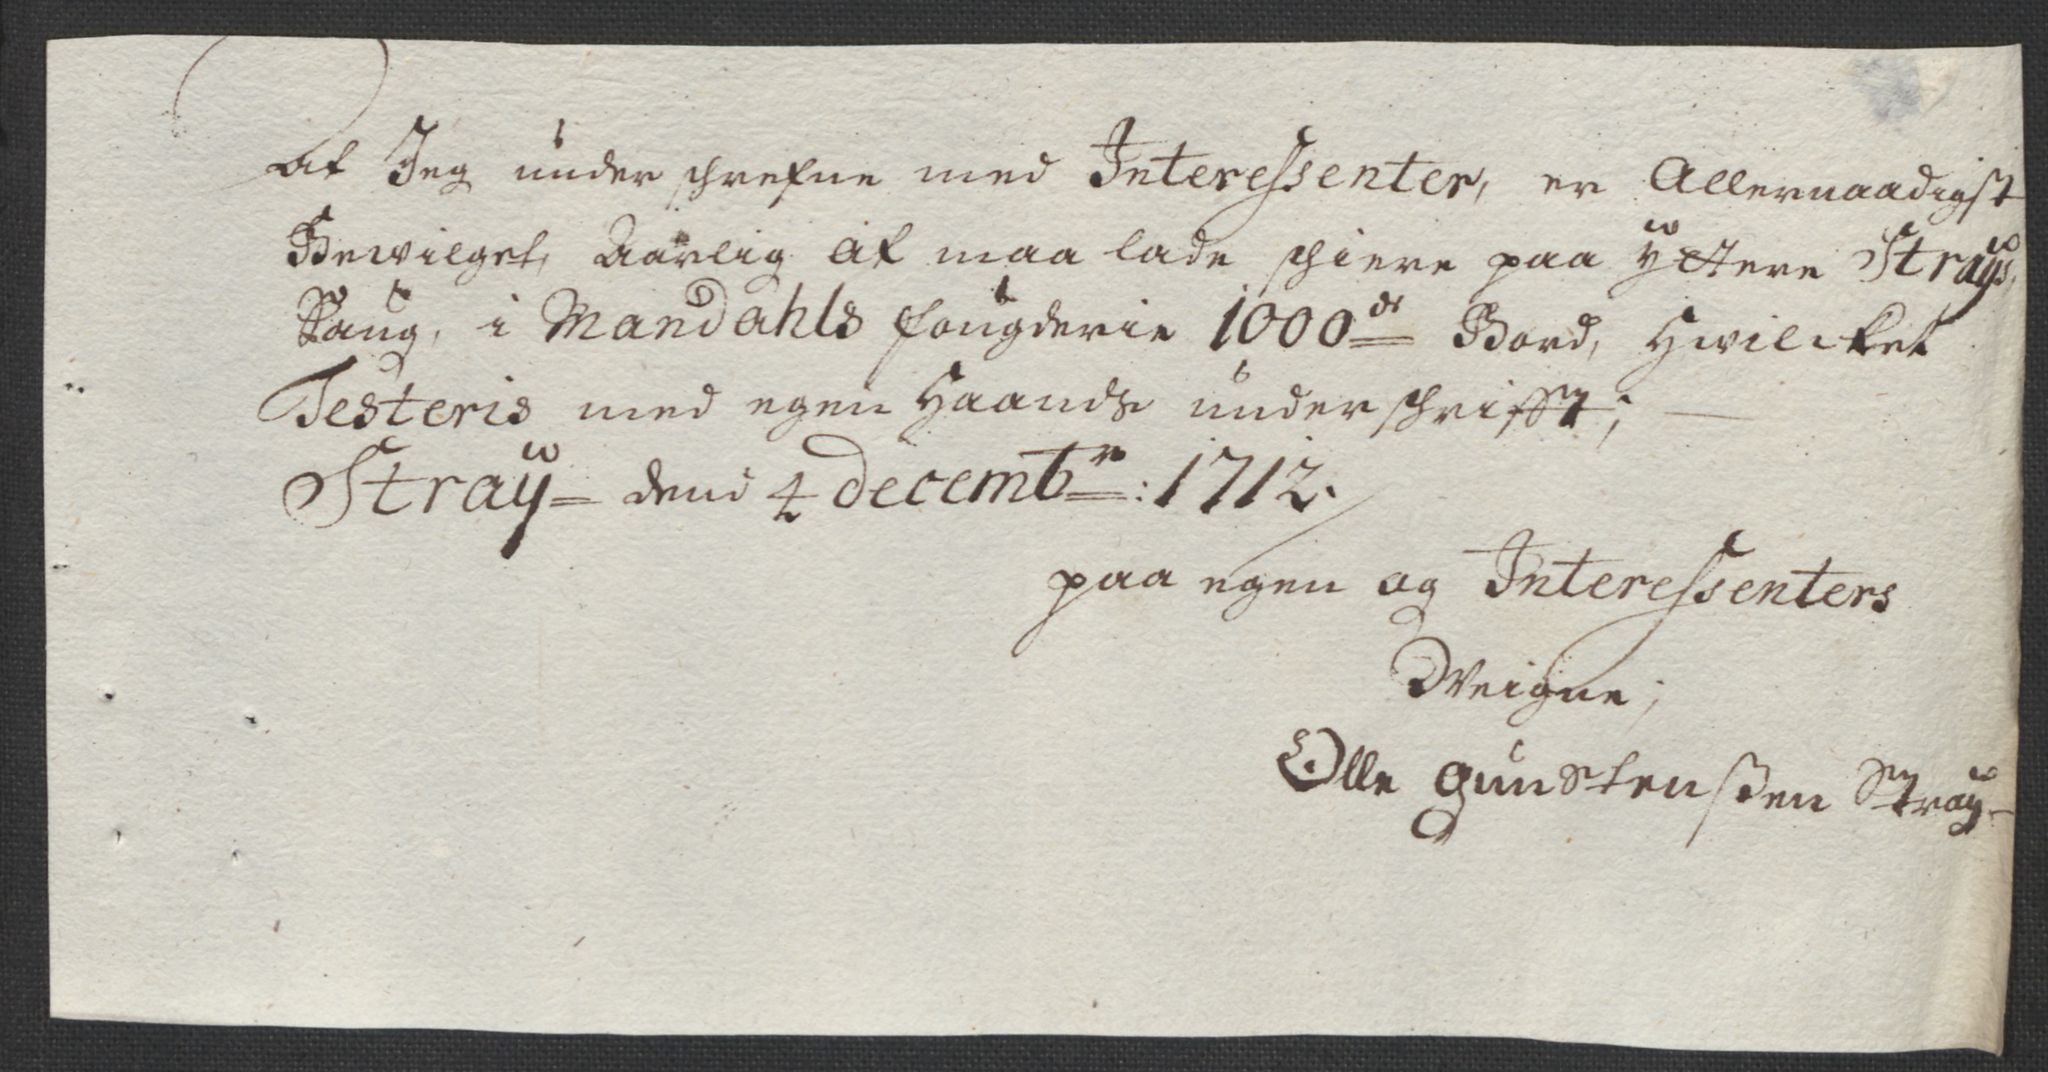 At Jeg underschrefne med Interessenter, er Allernaadigst
Bewilget, Aarlig at maa lade schiere paa ÿttere Straÿs
Saug, i Mandahls fougderie 1000de Bord, Hwilcket
Testeris med egen Haands underschrifft;
Straÿ= dend 4 decembr: 1712.
paa egen og Interessenters
Weigne;
Olle gunstenßen Straÿ-